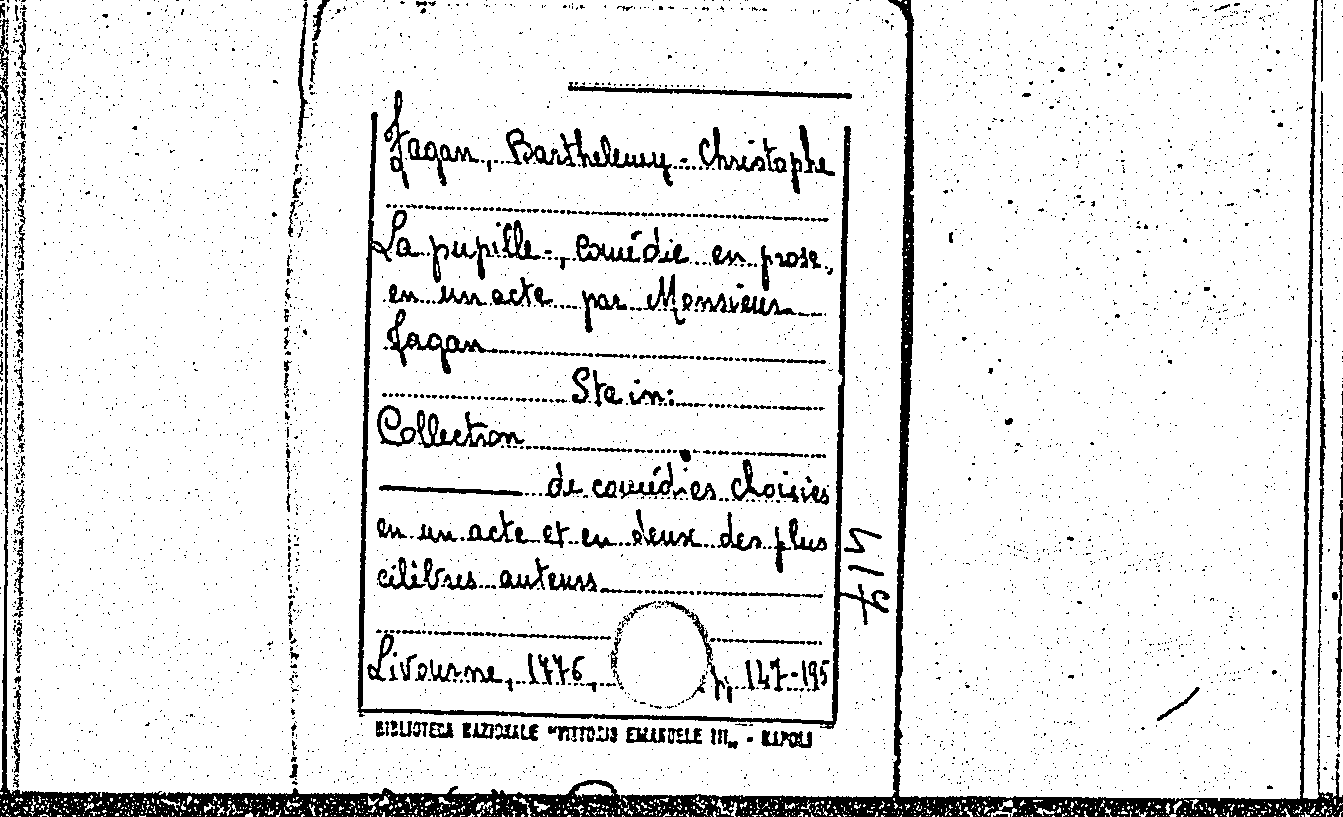 Fagan, Barthelemy-Christophe
La pupille-, comédie en prose,
en un acte par Monsieur
Fagan
Sta in:
Collection
de comédies choisies
en un acte et en deux des plus
célèbres auteurs
Livourne, 1776, p. 147-195
BIBLIOTECA NAZIONALE "VITTORIO EMANUELE III„ - NAPOLI